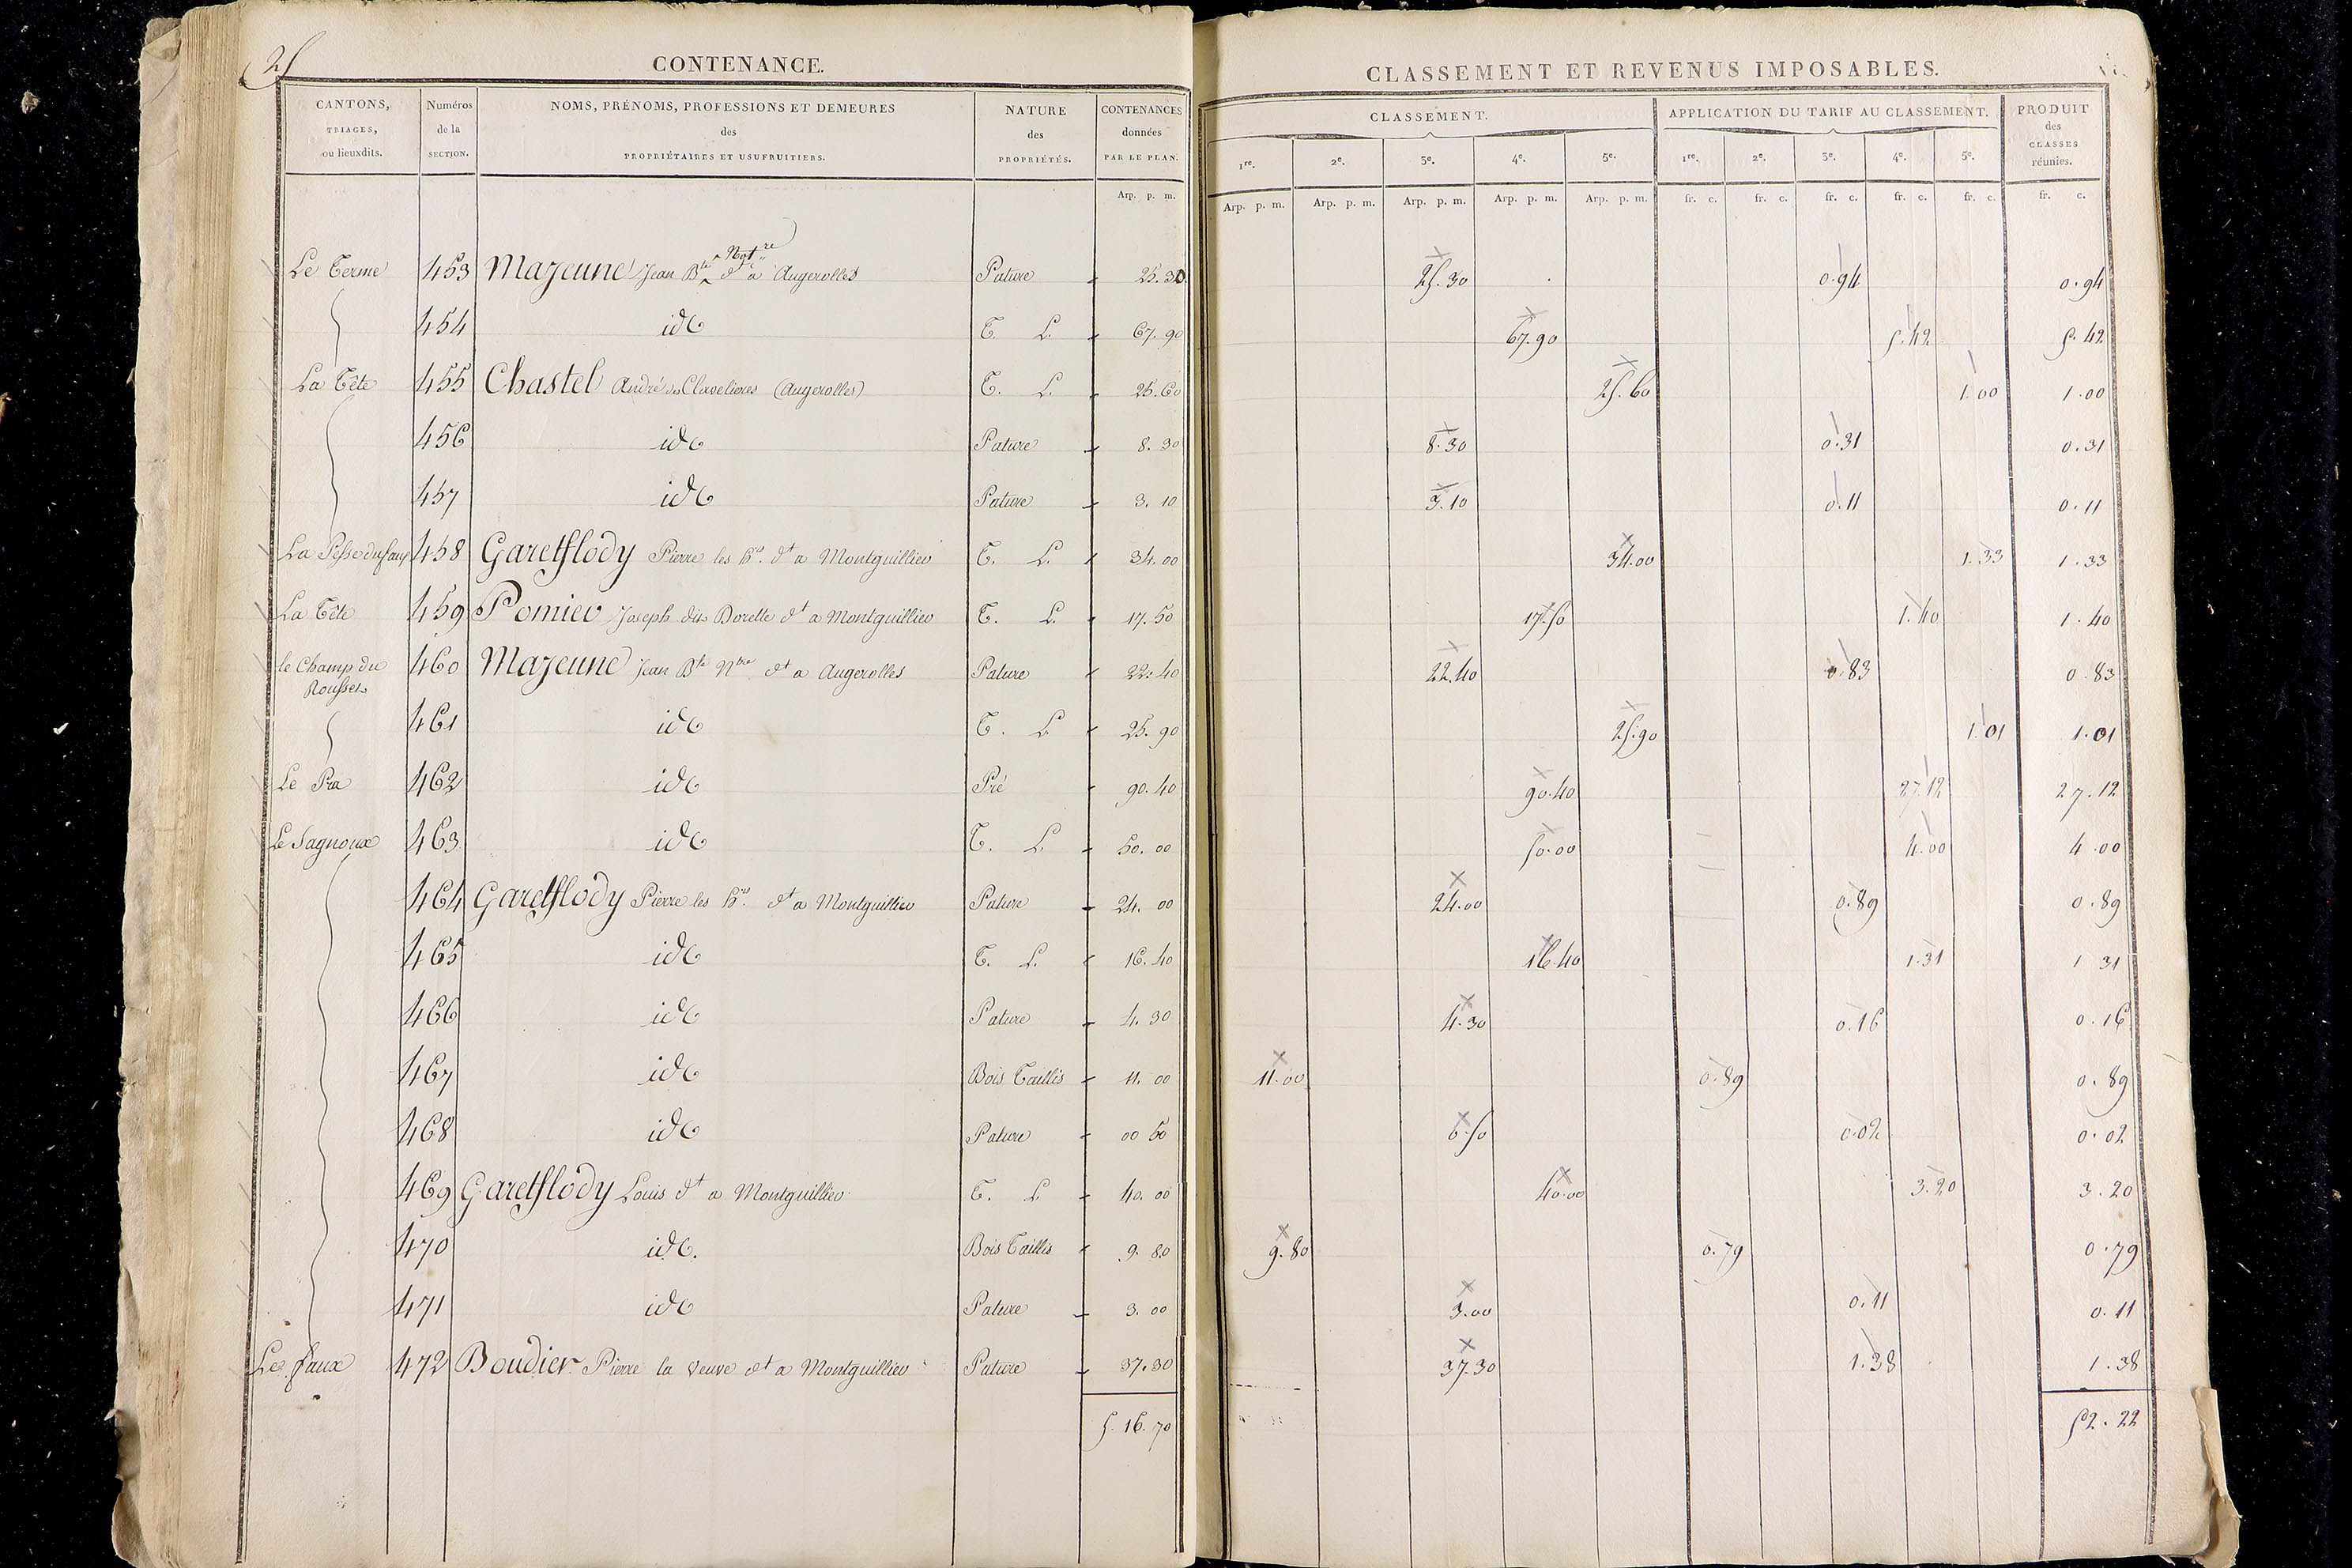 25
CONTENANCE.
CANTONS, TRIAGES, ou lieuxdits. Numéros de la SECTION. NOMS, PRÉNOMS, PROFESSIONS ET DEMEURES des PROPRIÉTAIRES ET USUFRUITIERS. NATURE des PROPRIÉTÉS. CONTENANCES données PAR LE PLAN.
Arp. p. m.
CLASSEMENT ET REVENUS IMPOSABLES.
CLASSEMENT. APPLICATION DU TARIF AU CLASSEMENT. PRODUIT des CLASSES réunies.
1re. 2e. 3e. 4e. 5e. 1re. 2e. 3e. 4e. 5e.
Arp. p. m. Arp. p. m. Arp. p. m. Arp. p. m. Arp. p. m. fr. c. fr. c. fr. c. fr. c. fr. c. fr. c.
Le Terme 453 Mazeune Jean Bte dt a Augerolles Pature 25.30 25.30 0.94 0.94
454 id T. L. 67.90 67.90 5.42 5.42
La Tête 455 Chastel André des Clavelieres (Augerolles) T. L. 25.60 25.60 1.00 1.00
456 id Pature 8.30 8.30 0.31 0.31
457 id Pature 3.10 3.10 0.11 0.11
458 Garetflody Pierre les hrs. dt a Montguillier T. L. 34.00 34.00 1.33 1.33
La Tête 459 Pomier Joseph dit Dorette dt a Montguillier T. L. 17.50 17.50 1.40 1.40
le Champ du Rousset 460 Mazeune Jean Bte Ntre dt a Augerolles Pature 22.40 22.40 0.83 0.83
461 id T. L 25.90 25.90 1.01 1.01
Le Pra 462 id Pré 90.40 90.40 27.12 27.12
Le Sagnoux 463 id T. L. 50.00 50.00 4.00 4.00
464 Garetflody Pierre les hrs. dt a Montguillier Pature 24.00 24.00 0.89 0.89
465 id T. L. 16.40 16.40 1.31 1 31
466 id Pature 4.30 4.30 0.16 0.16
467 id Bois Taillis 11.00 11.00 0.89 0.89
468 id Pature 00 50 0.02 0.02
469 Garetflody Louis dt a Montguillier T. L 40.00 40.00 3.20 3.20
470 id. Bois Taillis 9.80 9.80 0.79 0.79
471 id Pature 3.00 3.00 0.11 0.11
Le faux 472 Boudier Pierre la Veuve dt a Montguillier Pature 37.30 37.30 1.38 1.38
5.16.70 52.22